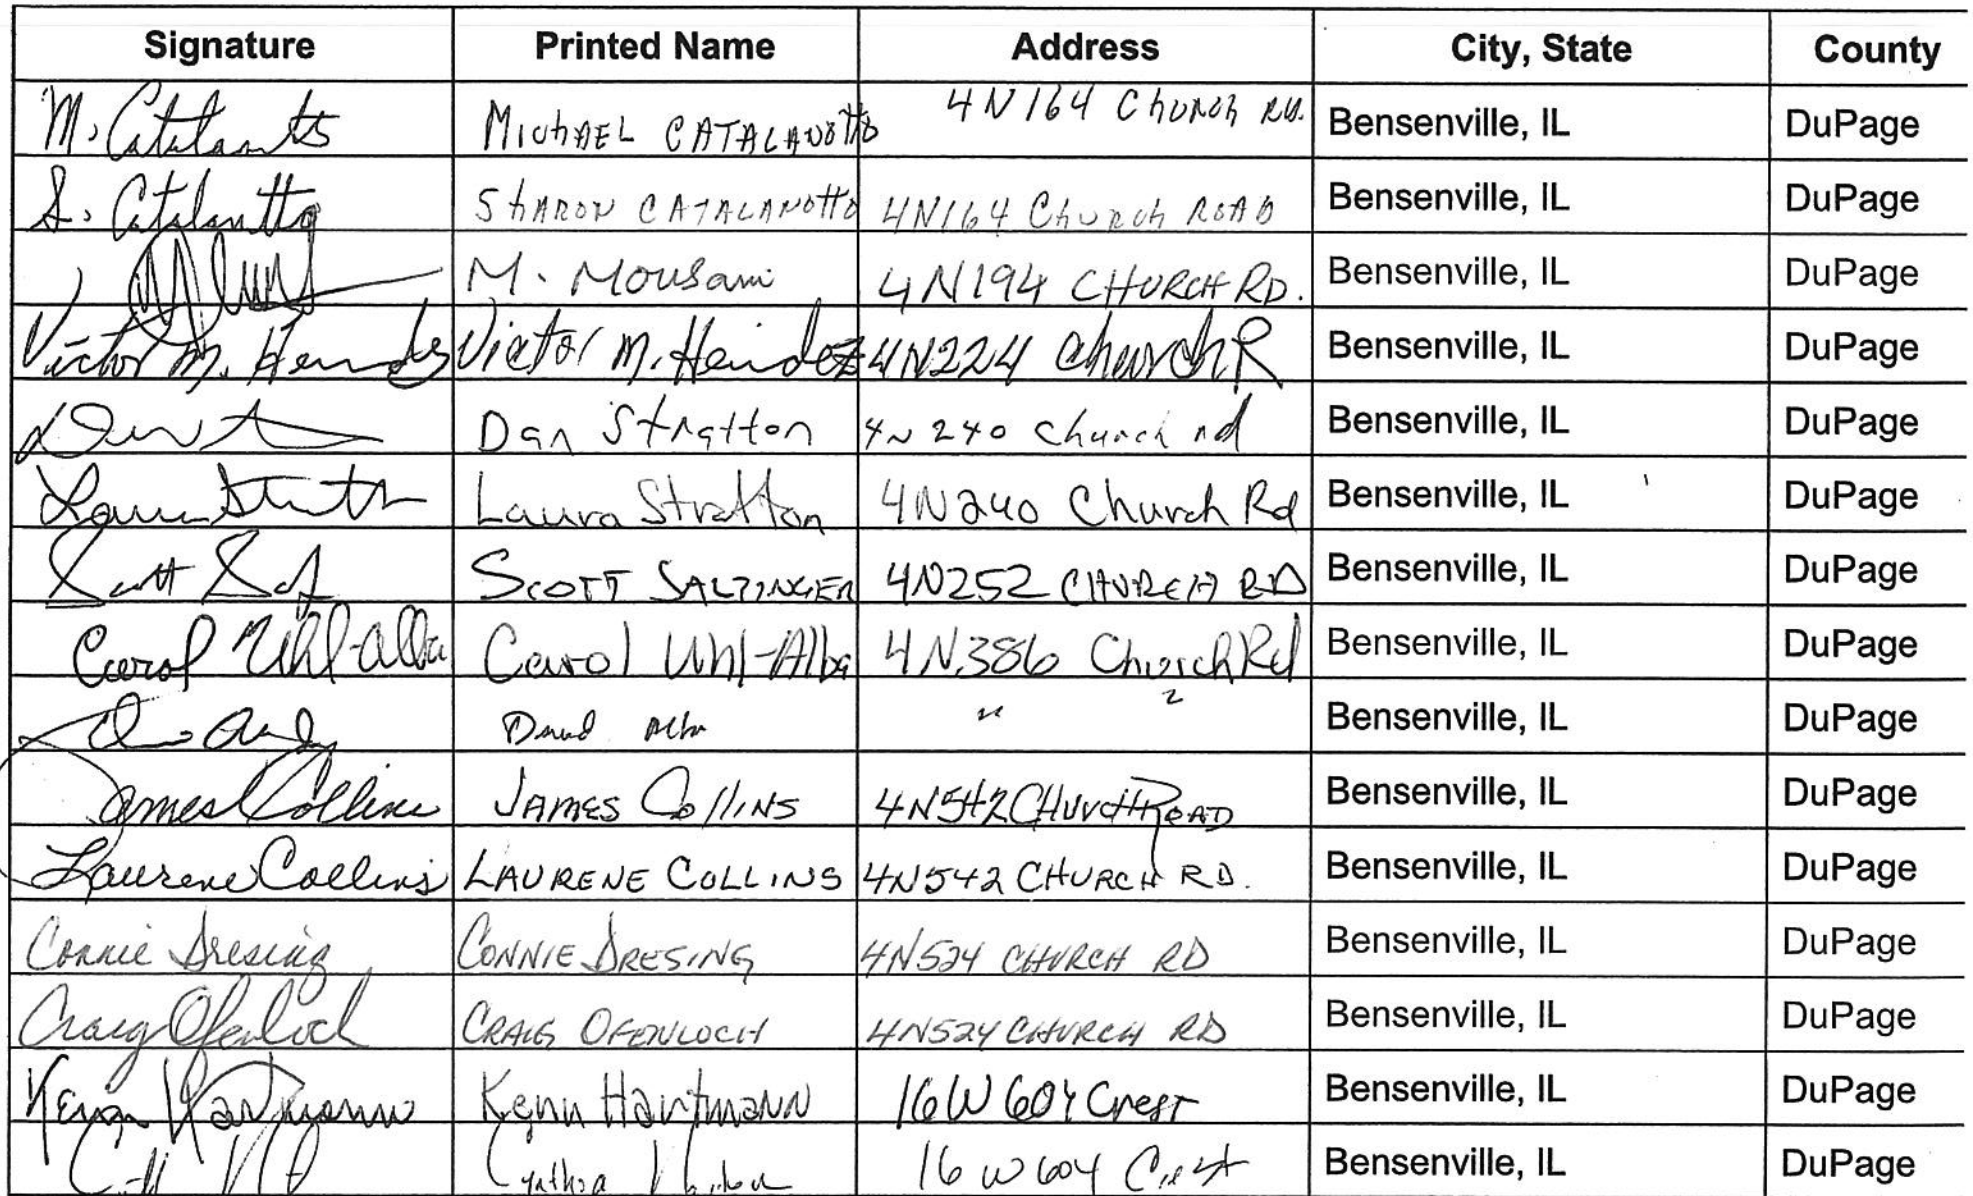 Signature Printed Name Address City, State County
M. Catalanotto MIChAEL CATALANOTTO 4N164 ChURCh RD. Bensenville, IL DuPage
S. Catalanotto ShARON CATALANOTTO 4N164 ChURCh ROAD Bensenville, IL DuPage
M. Mousami 4N194 CHURCH RD. Bensenville, IL DuPage
Victor M. Victor M. 4N224 Church R Bensenville, IL DuPage
Dan Stratton 4N240 Church rd Bensenville, IL DuPage
Laura Stratton Laura Stratton 4N240 Church Rd Bensenville, IL DuPage
Scott SCOTT SALZINGER 4N252 CHURCH RD Bensenville, IL DuPage
Carol Uhl-Alba Carol Uhl-Alba 4N386 Church Rd Bensenville, IL DuPage
David Alba " " Bensenville, IL DuPage
James Collins JAMES COllINS 4N542 CHURCH ROAD Bensenville, IL DuPage
Laurene Collins LAURENE COLLINS 4N542 CHURCH RD. Bensenville, IL DuPage
Connie Dresing CONNIE DRESING 4N524 CHURCH RD Bensenville, IL DuPage
Craig Ofenloch CRAIG OFENLOCH 4N524 CHURCH RD Bensenville, IL DuPage
Hartmann Hartmann 16W604 Crest Bensenville, IL DuPage
Cynthia 16W604 Crest Bensenville, IL DuPage